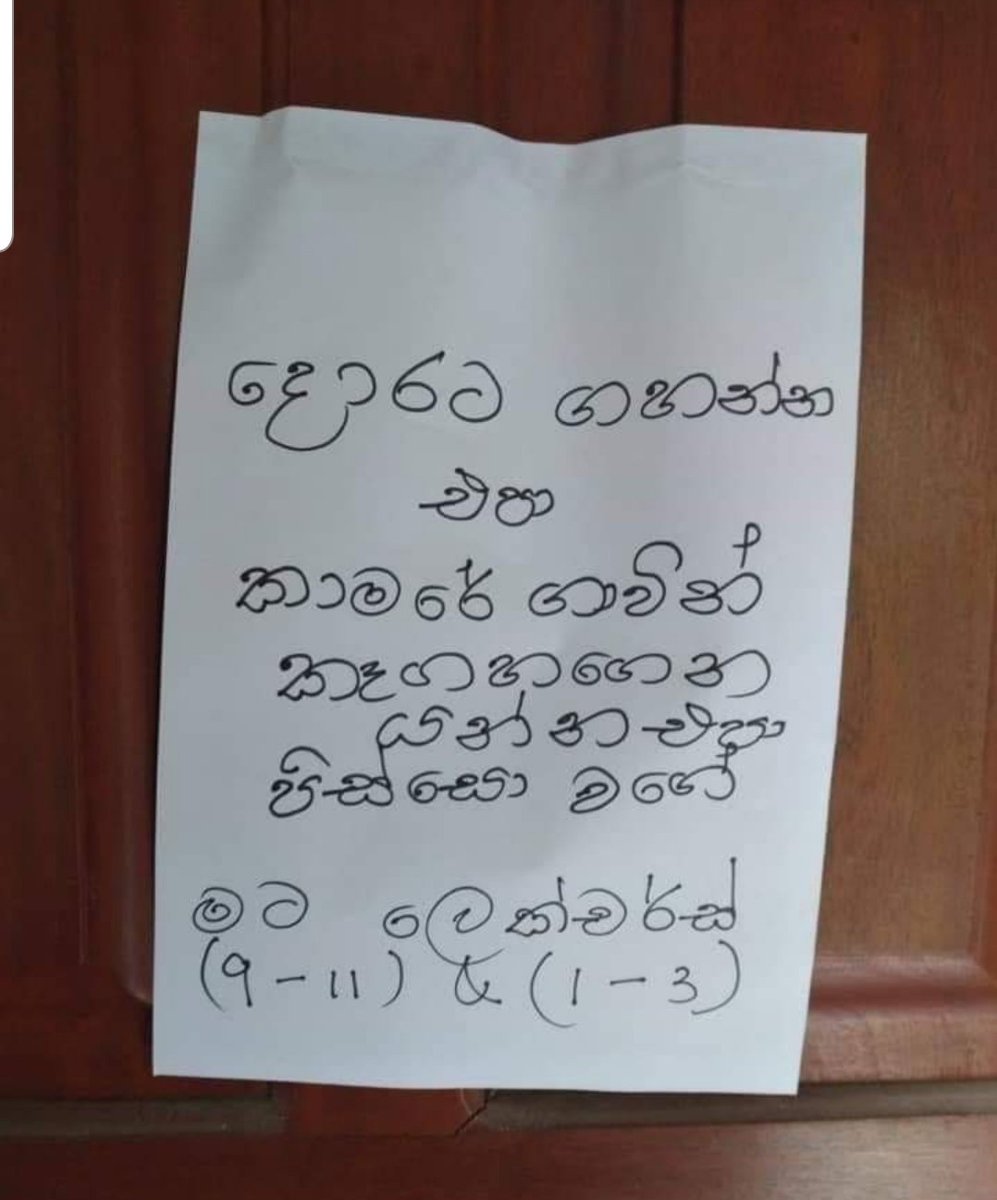 දොරට ගහන්න
එපා
කාමරේ ගාවින්
කෑගහගෙන
යන්න එපා
පිස්සො වගේ
මට ලෙක්චර්ස්
(9-11) & (1-3)